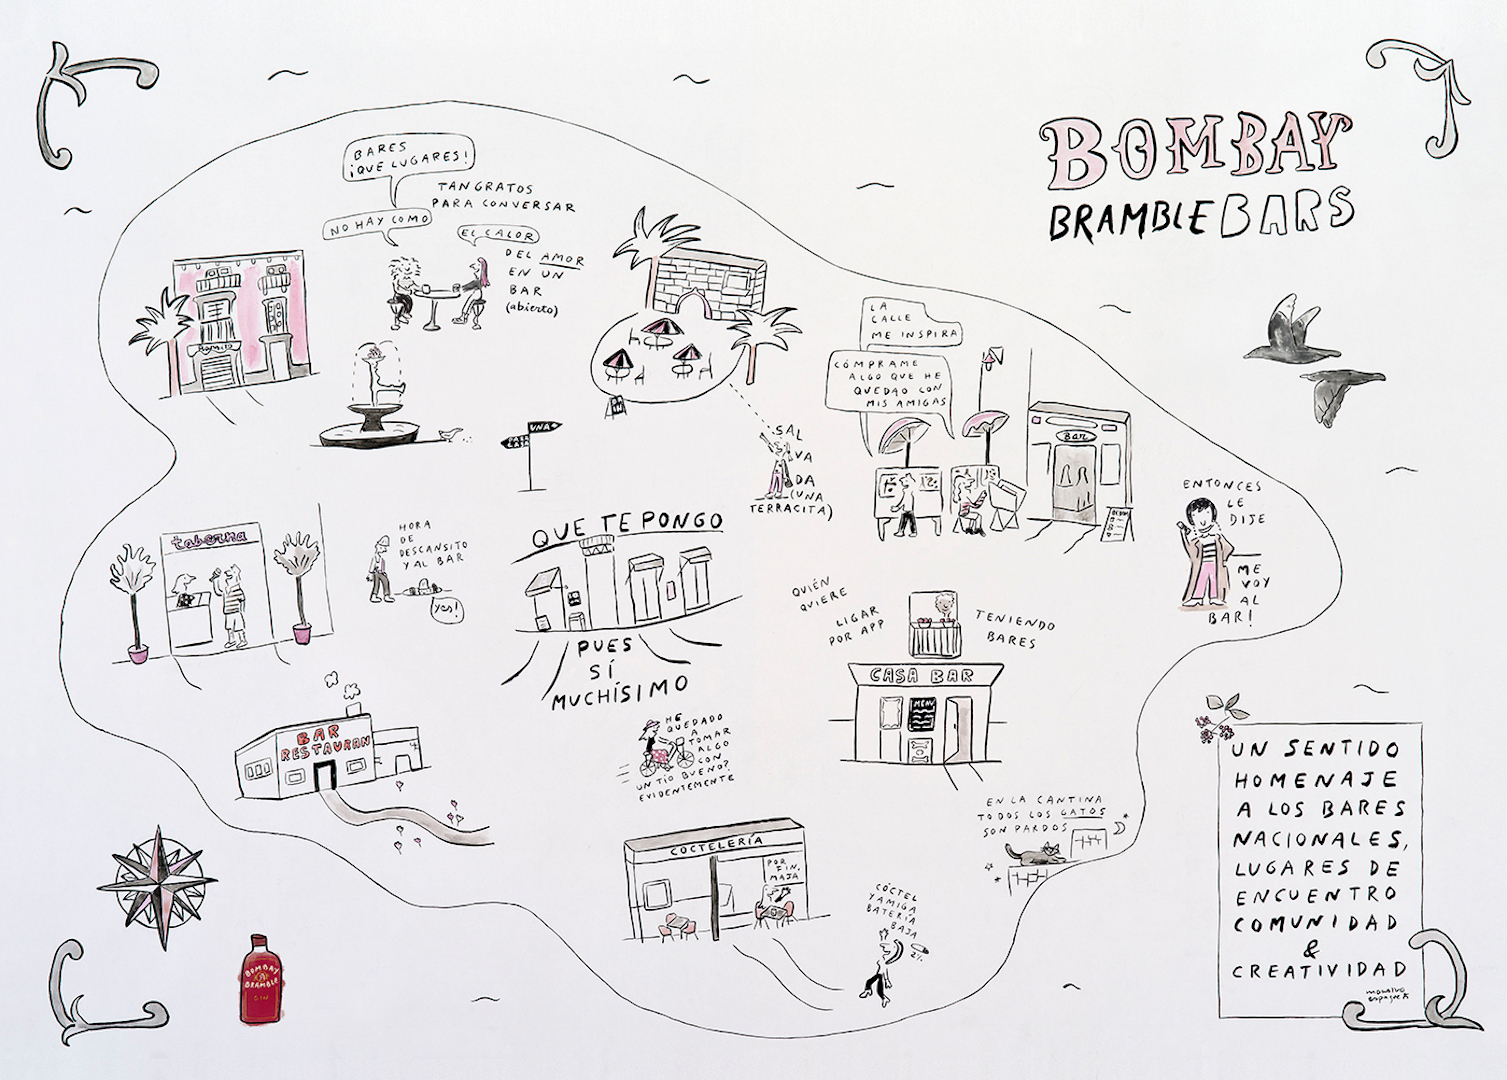 BOMBAY
BRAMBLE BARS
BARES
¡QUE LUGARES!
TAN GRATOS
PARA CONVERSAR
NO HAY COMO
EL CALOR
DEL AMOR
EN UN
BAR
(abierto)
UNA
SAL
VA
DA
(UNA
TERRACITA)
LA
CALLE
ME INSPIRA
CÓMPRAME
ALGO QUE HE
QUEDAO CON
MIS AMIGAS
Bar
ENTONCES
LE
DIJE
ME
VOY
AL
BAR!
taberna
HORA
DE
DESCANSITO
Y AL BAR
yes!
QUE TE PONGO
PUES
SÍ
MUCHÍSIMO
QUIÉN
QUIERE
LIGAR
POR APP
TENIENDO
BARES
CASA BAR
MENÚ
BAR
RESTAURAN
HE
QUEDADO
A
TOMAR
ALGO
CON
UN TÍO BUENO?
EVIDENTEMENTE
EN LA CANTINA
TODOS LOS GATOS
SON PARDOS
COCTELERÍA
POR
FIN,
MAJA
CÓCTEL
Y AMIGA
BATERÍA
BAJA
2%
BOMBAY
BRAMBLE
GIN
UN SENTIDO
HOMENAJE
A LOS BARES
NACIONALES,
LUGARES DE
ENCUENTRO
COMUNIDAD
&
CREATIVIDAD